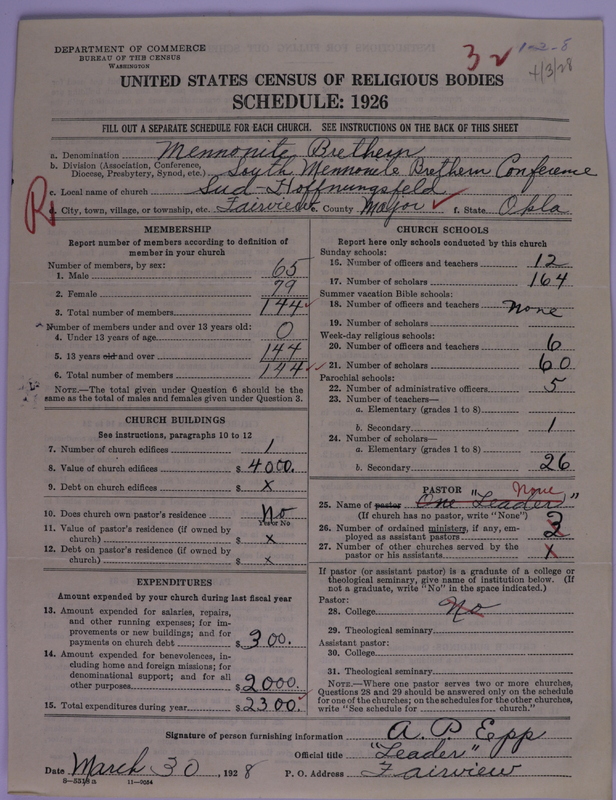 DEPARTMENT OF COMMERCE
BUREAU OF THE CENSUS
WASHINGTON
4/3/28
UNITED STATES CENSUS OF RELIGIOUS BODIES
SCHEDULE: 1926
FILL OUT A SEPARATE SCHEDULE FOR EACH CHURCH. SEE INSTRUCTIONS ON THE BACK OF THIS SHEET
a. Denomination Mennonite Brethern
b. Division (Association, Conference, Diocese, Presbytery, Synod, etc.) South Mennonite Brethern Conference
c. Local name of church Sud-Hoffnungsfeld
R
d. City, town, village, or township, etc. Fairview e. County Major f. State Okla
MEMBERSHIP
Report number of members according to definition of
member in your church
Number of members, by sex:
1. Male 65
2. Female 79
3. Total number of members 144
Number of members under and over 13 years old:
4. Under 13 years of age 0
5. 13 years old and over 144
6. Total number of members 144
NOTE.—The total given under Question 6 should be the
same as the total of males and females given under Question 3.
CHURCH BUILDINGS
See instructions, paragraphs 10 to 12
7. Number of church edifices 1
8. Value of church edifices $ 4000.
9. Debt on church edifices $ x
10. Does church own pastor's residence No
Yes or No
11. Value of pastor's residence (if owned by
church) $ x
12. Debt on pastor's residence (if owned by
church) $ x
EXPENDITURES
Amount expended by your church during last fiscal year
13. Amount expended for salaries, repairs,
and other running expenses; for im-
provements or new buildings; and for
payments on church debt $ 300.
14. Amount expended for benevolences, in-
cluding home and foreign missions; for
denominational support; and for all
other purposes $ 2000.
15. Total expenditures during year $ 2300.
CHURCH SCHOOLS
Report here only schools conducted by this church
Sunday schools:
16. Number of officers and teachers 12
17. Number of scholars 164
Summer vacation Bible schools:
18. Number of officers and teachers none
19. Number of scholars
Week-day religious schools:
20. Number of officers and teachers 6
21. Number of scholars 60
Parochial schools:
22. Number of administrative officers 5
23. Number of teachers—
a. Elementary (grades 1 to 8)
b. Secondary 1
24. Number of scholars—
a. Elementary (grades 1 to 8)
b. Secondary 26
PASTOR
None
25. Name of pastor One "Leader"
(If church has no pastor, write "None")
26. Number of ordained ministers, if any, em-
ployed as assistant pastors
27. Number of other churches served by the
pastor or his assistants x
If pastor (or assistant pastor) is a graduate of a college or
theological seminary, give name of institution below. (If
not a graduate, write "No" in the space indicated.)
Pastor:
28. College No
29. Theological seminary
Assistant pastor:
30. College
31. Theological seminary
NOTE.—Where one pastor serves two or more churches,
Questions 28 and 29 should be answered only on the schedule
for one of the churches; on the schedules for the other churches,
write "See schedule for church."
Signature of person furnishing information A. P. Epp
Official title "Leader"
Date March 30, 1928 P. O. Address Fairview
8—5518a 11—9084